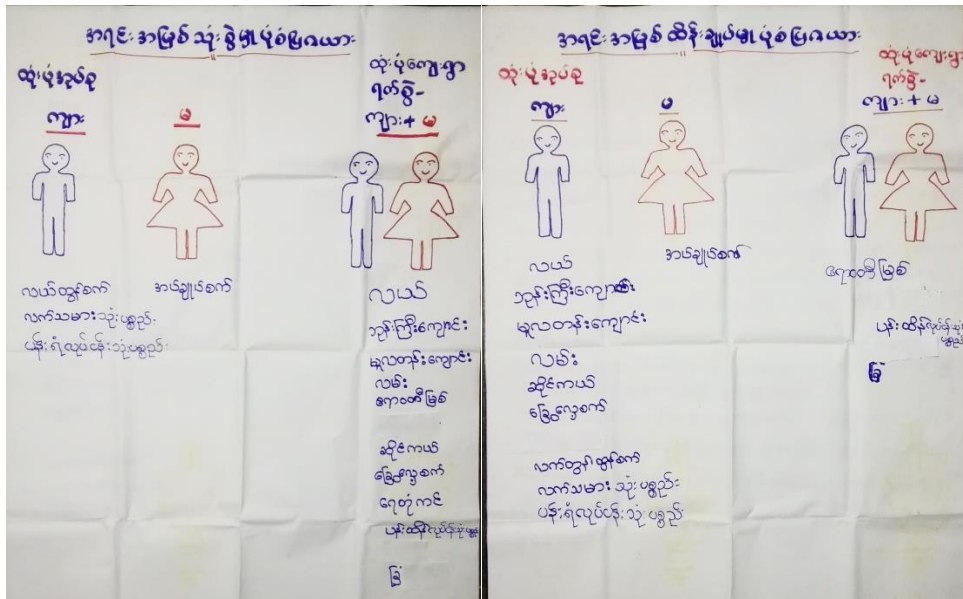 အရင်းအမြစ် သုံးစွဲမှု ပုံစံပြဇယား
ထုံးပုံအုပ်စု
ကျား
မ
ထုံးပုံကျေးရွာ
ရက်စွဲ-
ကျား + မ
လယ်ထွန်စက်
လက်သမားသုံးပစ္စည်း
ပန်းရံလုပ်ငန်းသုံးပစ္စည်း
အပ်ချုပ်စက်
လယ်
ဘုန်းကြီးကျောင်း
မူလတန်းကျောင်း
လမ်း
ဧရာဝတီမြစ်
ဆိုင်ကယ်
ခြွေလှေ့စက်
ရေတုံကင်
ပန်းထိန်လုပ်ငန်းသုံးပစ္စ
ခြံ
အရင်းအမြစ် ထိန်းချုပ်မှု ပုံစံပြဇယား
ထုံးပုံအုပ်စု
ကျား
မ
ထုံးပုံကျေးရွာ
ရက်စွဲ-
ကျား + မ
လယ်
ဘုန်းကြီးကျောင်း
မူလတန်းကျောင်း
လမ်း
ဆိုင်ကယ်
ခြွေလှေ့စက်
လက်တွန်းထွန်စက်
လက်သမားသုံးပစ္စည်း
ပန်းရံလုပ်ငန်းသုံးပစ္စည်း
အပ်ချုပ်စက်
ဧရာဝတီမြစ်
ပန်းထိန်လုပ်ငန်းသုံး
ပစ္စည်း
ခြံ